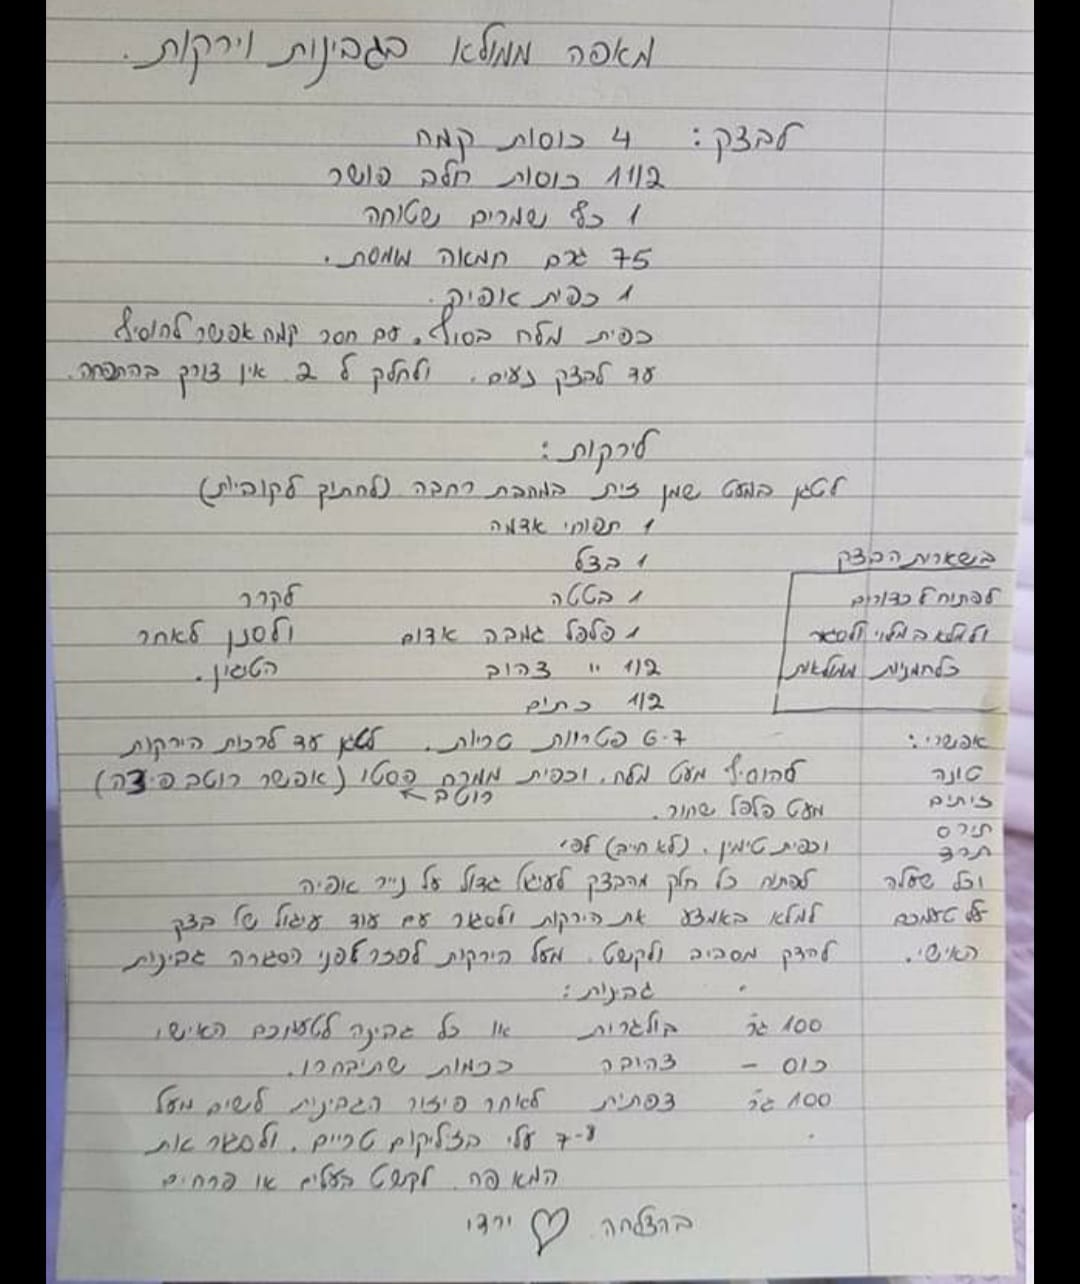 מאפה ממולא בגבינות וירקות.
לבצק: 4 כוסות קמח
1 1/2 כוסות חלב פושר
1 כף שמרים שטוחה
75 גרם חמאה מומסת.
1 כפית אופיה.
כפית מלח בסוף. עם חסר קמח אפשר להוסיף
עד לבצק נעים. ולחלק ל 2 אין צורך בהתפחה.
לירקות:
לטגן במעט שמן זית במחבת רחבה (לחתוך לקוביות)
1 תפוחי אדמה
1 בצל
1 בטטה
1 פלפל גמבה אדום
1/2 " צהוב
1/2 כתום
לקרר
ולסנן לאחר
הטיגון.
בשארית הבצק
לפתוח לכדורים
ולמלא במלוי ולסגור
כלחמניות ממולאות
6-7 פטריות טריות. לטגן עד לרכות הירקות
להוסיף מעט מלח. וכפית ממרח פסטו (אפשר רוטב פיצה)
רוטב
מעט פלפל שחור.
וכפית טימין. (לא חייב) לפי
אפשרי:
טונה
זיתים
תירס
תרד
וכל שעולה
על טעמכם
האישי.
לפתוח כל חלק מהבצק לעיגול גדול על נייר אופיה
למלא באמצע את הירקות ולסגור עם עוד עיגול של בצק
להדק מסביב ולקשט. מעל הירקות לפזר לפני הסגרה גבינות
גבינות:
100 גר' בולגרית או כל גבינה לטעמכם האישי
כוס – צהובה ככמות שתיבחרו.
100 גר' צפתית לאחר פיזור הגבינות לשים מעל
7-8 עלי בזליקום טריים. ולסגור את
המאפה. לקשט בעלים או פרחים
בהצלחה ♡ ירדן